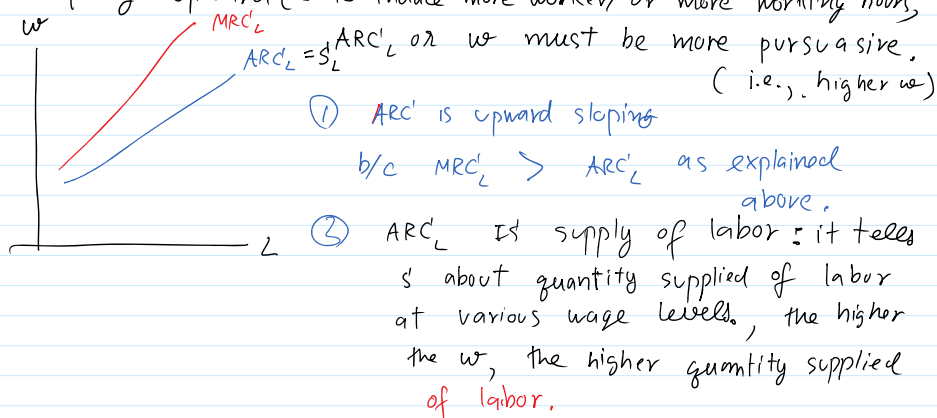 to induce more workers or more working hours,
w
MRC_L
ARC_L = S_L
ARC_L or w must be more pursuasive.
(i.e., higher w)
① ARC is upward sloping
b/c MRC_L > ARC_L as explained
above.
L
② ARC_L IS supply of labor : it tells
s about quantity supplied of labor
at various wage levels., the higher
the w, the higher quantity supplied
of labor.